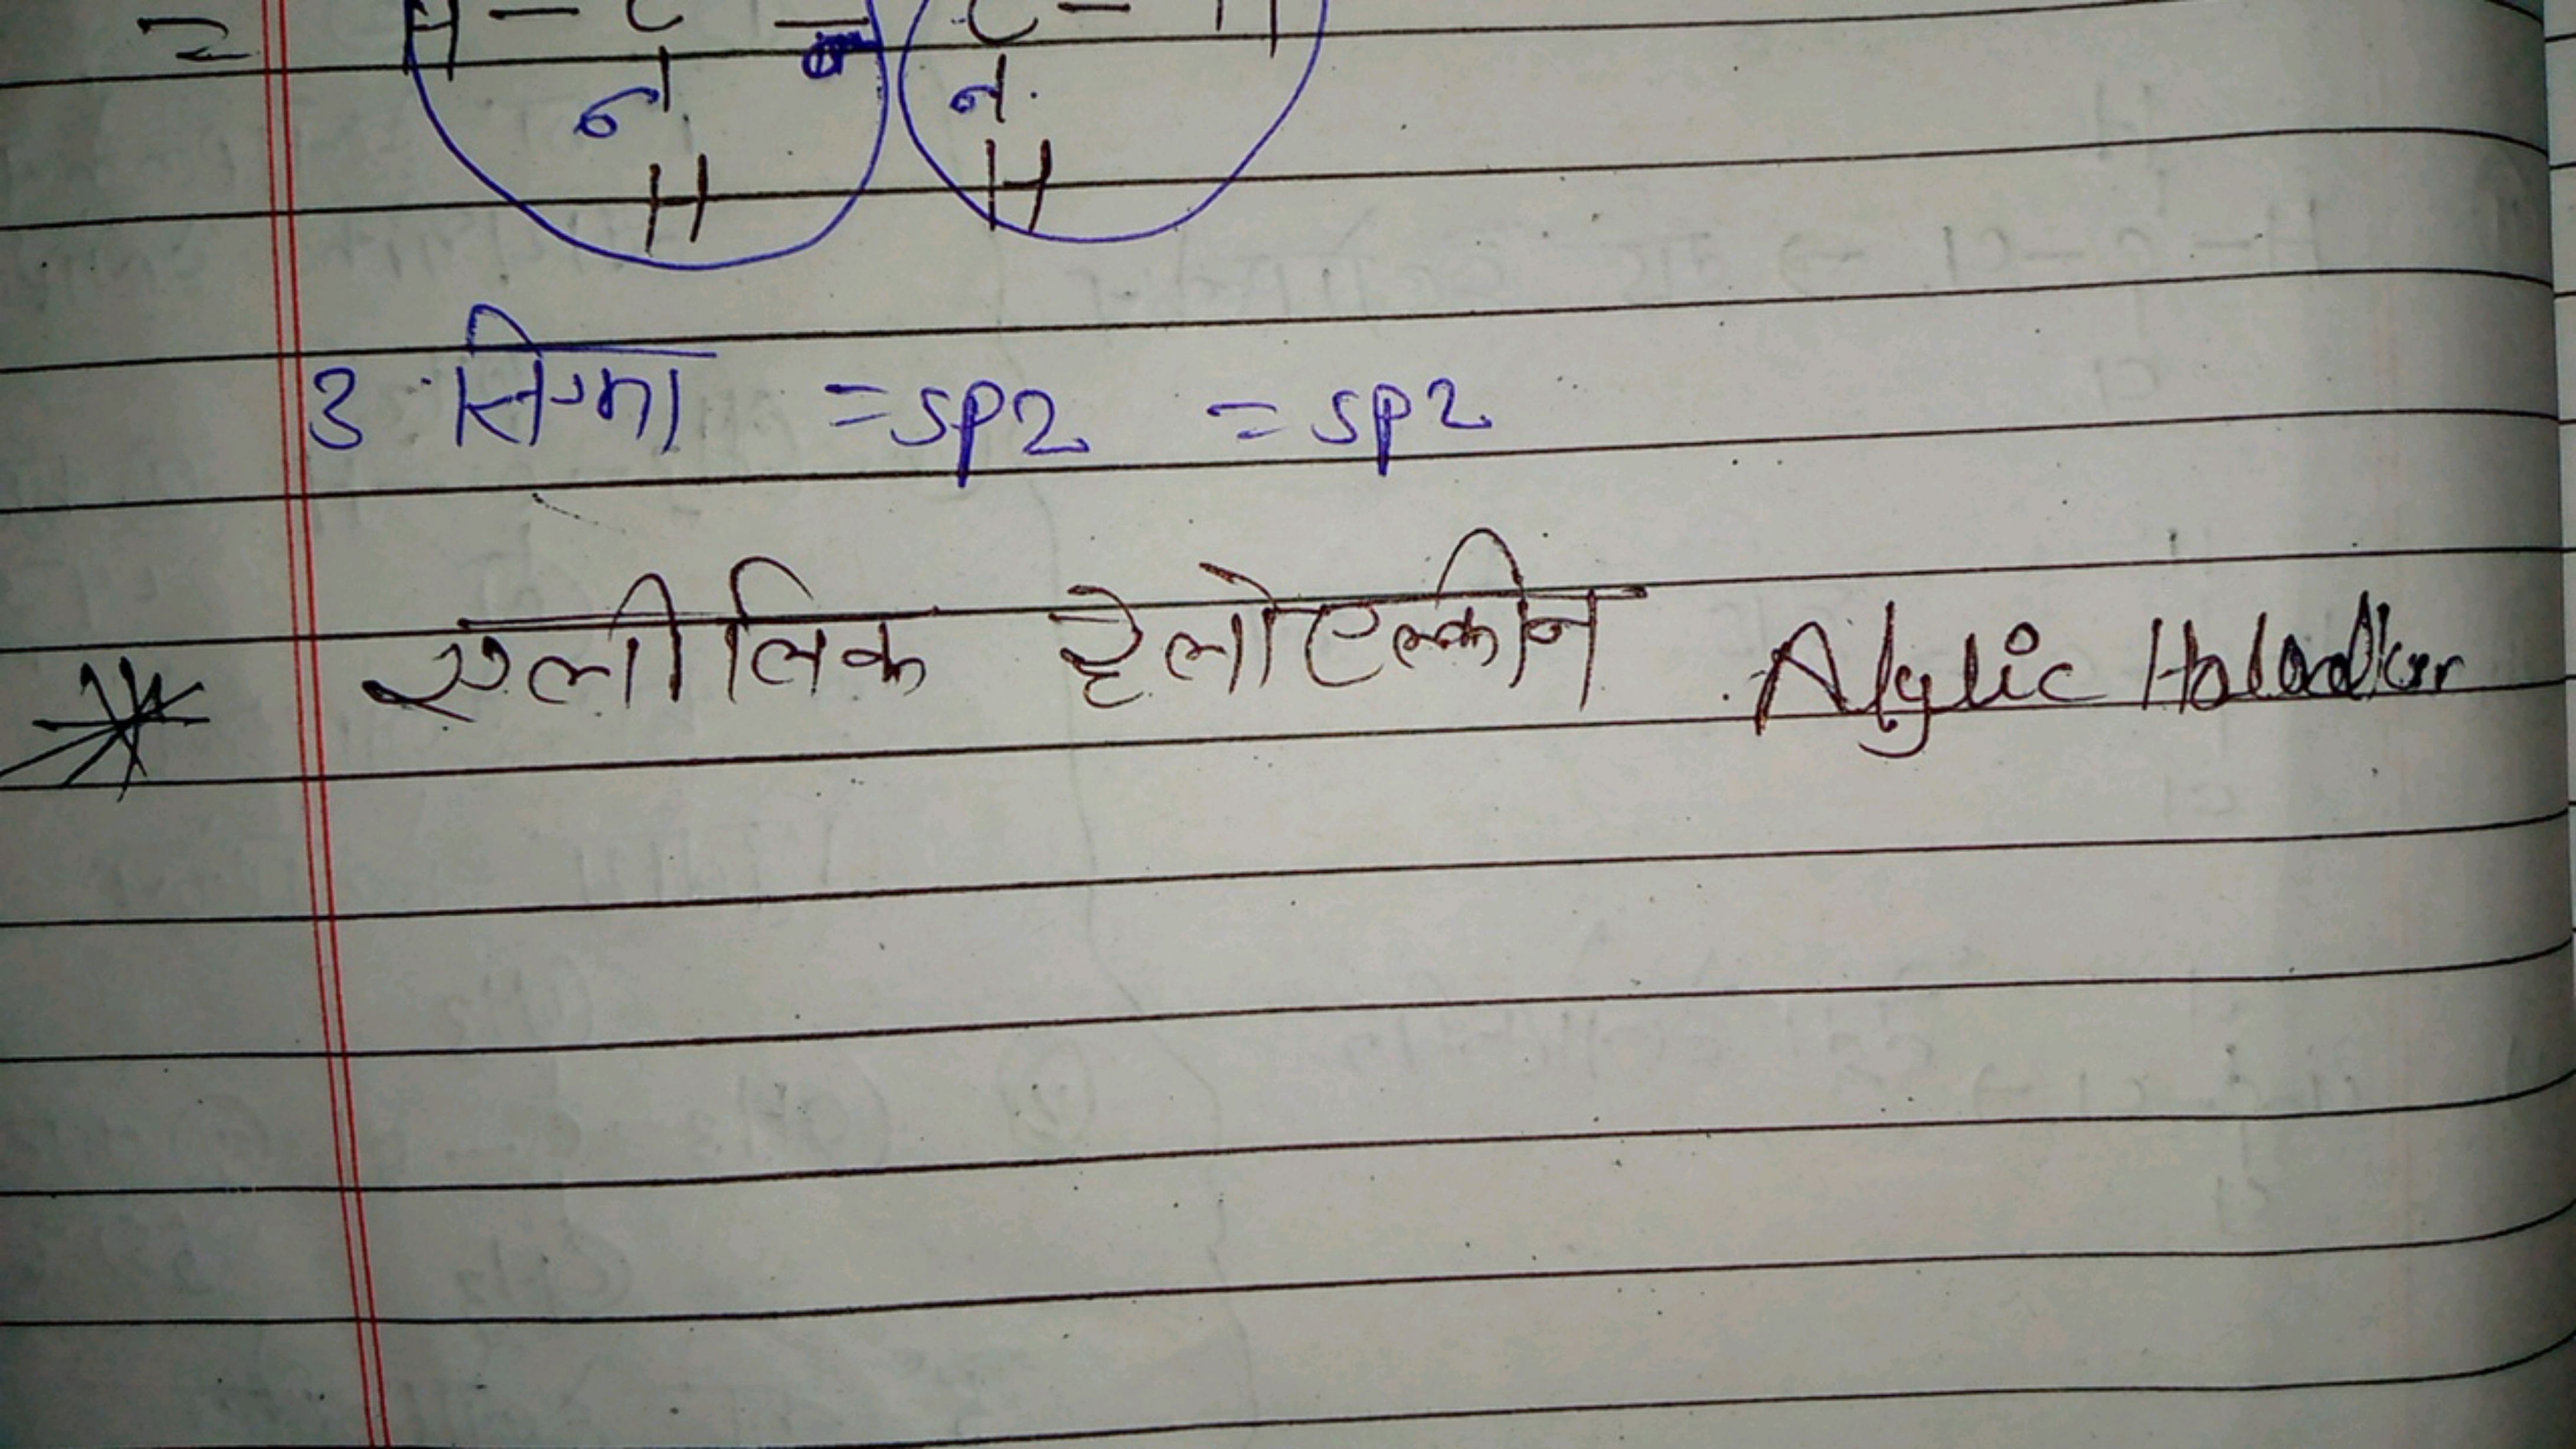 = H - C = C - H
σ σ σ
H H
3 सिग्मा = sp2 = sp2
एलीलिक हैलोएल्कीन Alylic Haloalker